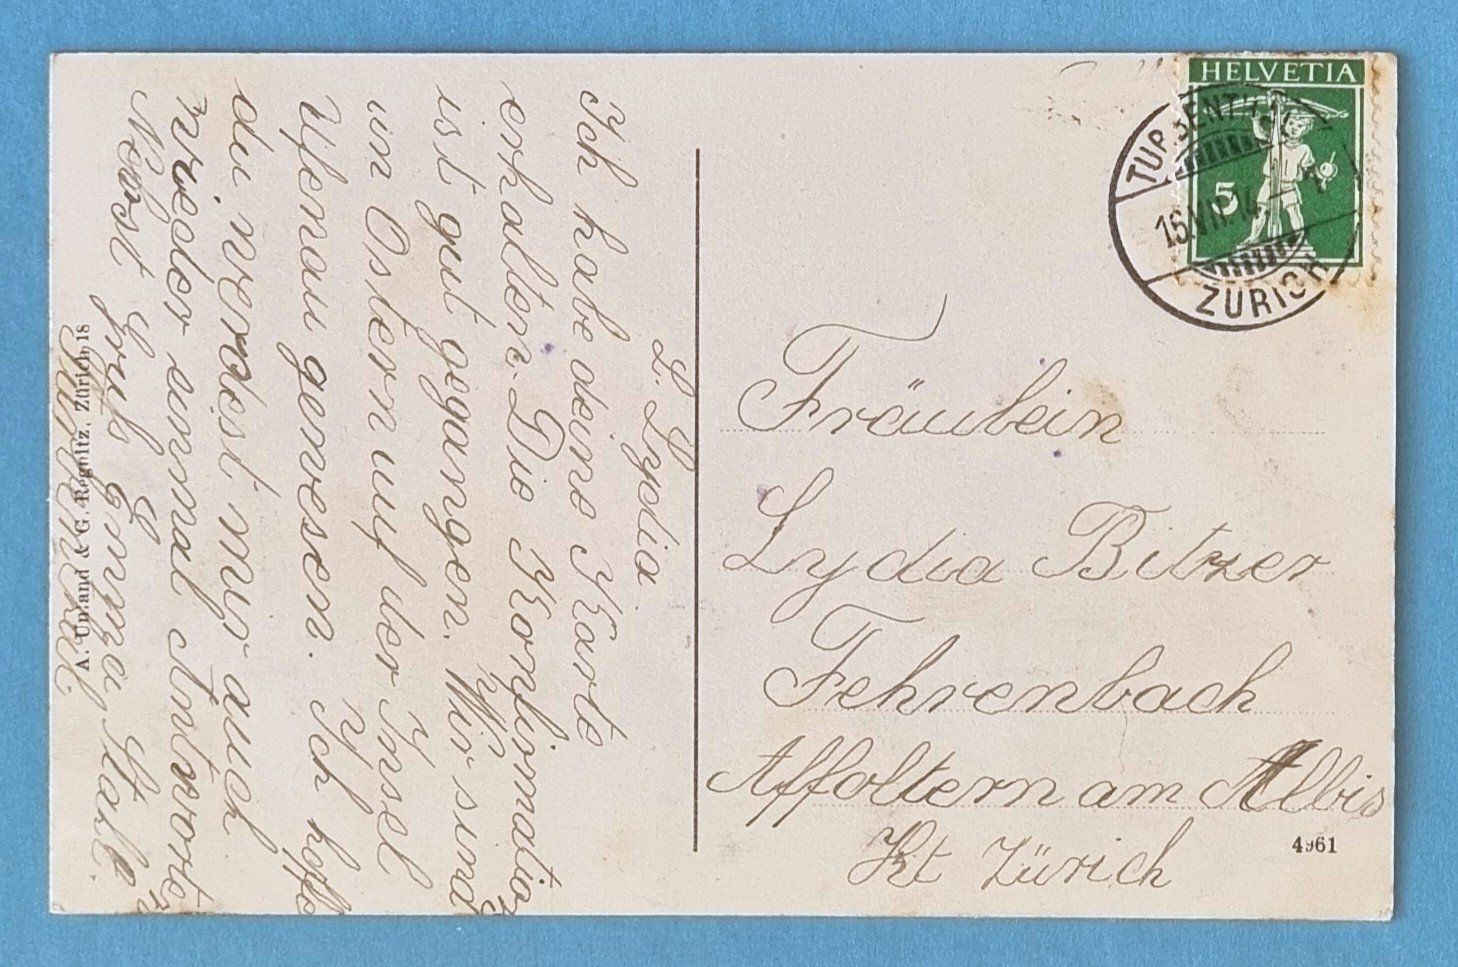 L. Lydia
Ich habe deine Karte
erhalten. Die Konfirmation
ist gut gegangen. Wir sind
an Ostern auf der Insel
Ufenau gewesen. Ich hoffe
du werdest mir auch
wieder einmal Antworten
Nebst Gruß Emma Stahl.
A. Umland & G. Regnitz, Zürich 18
HELVETIA
5
TURBENTHAL
ZÜRICH
Fräulein
Lydia Bitzer
Fehrenbach
Affoltern am Albis
Kt Zürich
4961